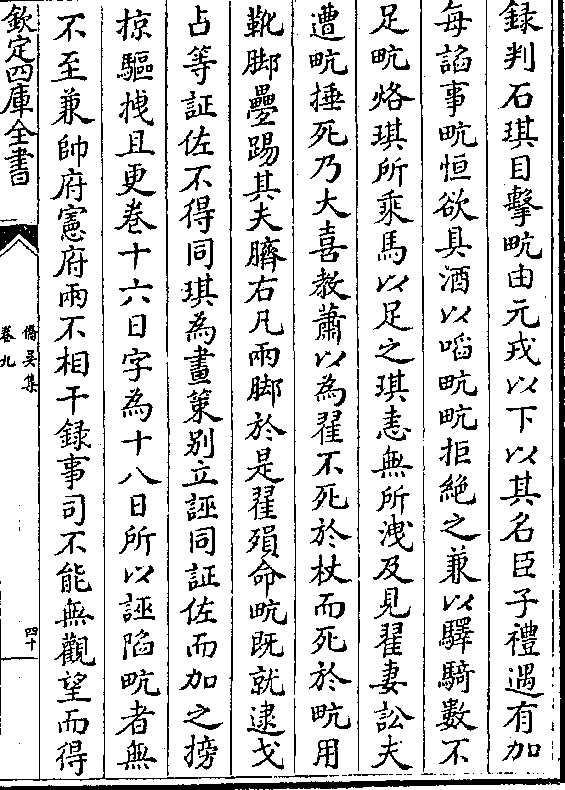 録判石琪目擊畮由元戎以下以其名臣子禮遇有加
每諂事畮恒欲具酒以啗畮畮拒絶之兼以驛騎數不
足畮烙琪所乘馬以足之琪恚無所洩及見翟妻訟夫
遭畮捶死乃大喜教蕭以為翟不死於杖而死於畮用
靴脚疊踢其夫臍右凡兩脚於是翟殞命畮既就逮戈
占等証佐不得同琪為畫策别立誣同証佐而加之搒
掠驅拽且更卷十六日字為十八日所以誣陷畮者無
不至兼帥府憲府兩不相干録事司不能無觀望而得
欽定四庫全書
僑吳集
卷九
四十